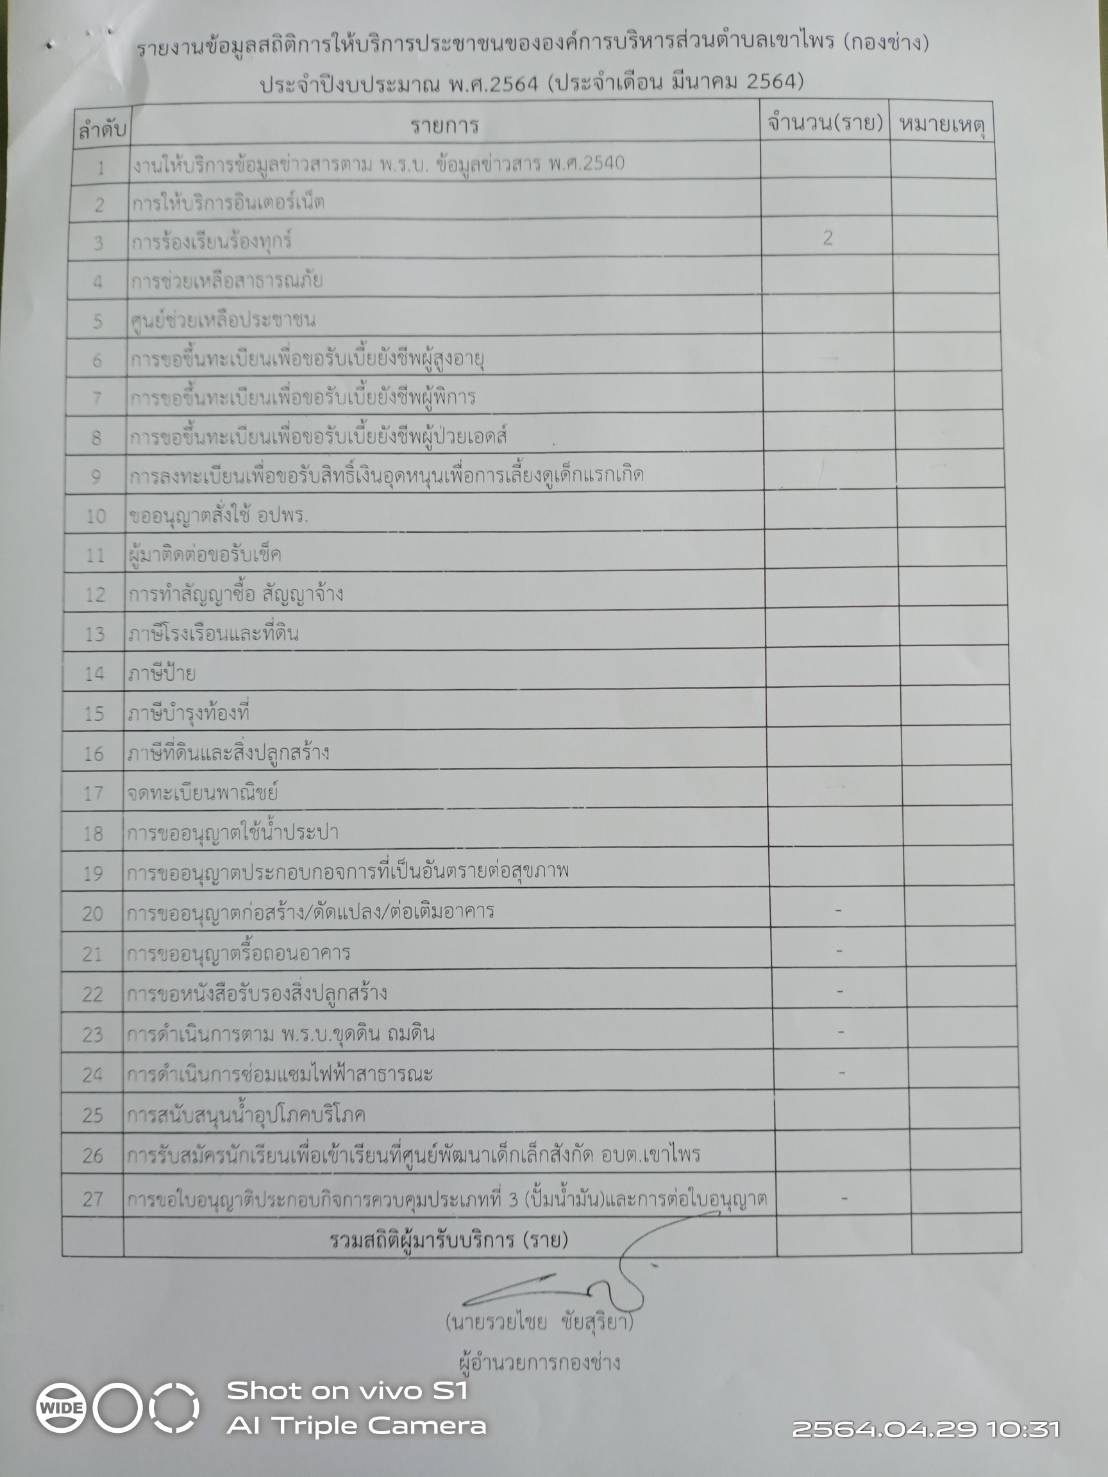 รายงานข้อมูลสถิติการให้บริการประชาชนขององค์การบริหารส่วนตำบลเขาไพร (กองช่าง)
ประจำปีงบประมาณ พ.ศ.2564 (ประจำเดือน มีนาคม 2564)
ลำดับ รายการ จำนวน(ราย) หมายเหตุ
1 งานให้บริการข้อมูลข่าวสารตาม พ.ร.บ. ข้อมูลข่าวสาร พ.ศ.2540
2 การให้บริการอินเตอร์เน็ต
3 การร้องเรียนร้องทุกร์ 2
4 การช่วยเหลือสาธารณภัย
5 ศูนย์ช่วยเหลือประชาชน
6 การขอขึ้นทะเบียนเพื่อขอรับเบี้ยยังชีพผู้สูงอายุ
7 การขอขึ้นทะเบียนเพื่อขอรับเบี้ยยังชีพผู้พิการ
8 การขอขึ้นทะเบียนเพื่อขอรับเบี้ยยังชีพผู้ป่วยเอดส์
9 การลงทะเบียนเพื่อขอรับสิทธิ์เงินอุดหนุนเพื่อการเลี้ยงดูเด็กแรกเกิด
10 ขออนุญาตสั่งใช้ อปพร.
11 ผู้มาติดต่อขอรับเช็ค
12 การทำสัญญาซื้อ สัญญาจ้าง
13 ภาษีโรงเรือนและที่ดิน
14 ภาษีป้าย
15 ภาษีบำรุงท้องที่
16 ภาษีที่ดินและสิ่งปลูกสร้าง
17 จดทะเบียนพาณิชย์
18 การขออนุญาตใช้น้ำประปา
19 การขออนุญาตประกอบกอจการที่เป็นอันตรายต่อสุขภาพ
20 การขออนุญาตก่อสร้าง/ดัดแปลง/ต่อเติมอาคาร -
21 การขออนุญาตรื้อถอนอาคาร -
22 การขอหนังสือรับรองสิ่งปลูกสร้าง -
23 การดำเนินการตาม พ.ร.บ.ขุดดิน ถมดิน -
24 การดำเนินการซ่อมแซมไฟฟ้าสาธารณะ -
25 การสนับสนุนน้ำอุปโภคบริโภค
26 การรับสมัครนักเรียนเพื่อเข้าเรียนที่ศูนย์พัฒนาเด็กเล็กสังกัด อบต.เขาไพร
27 การขอใบอนุญาติประกอบกิจการควบคุมประเภทที่ 3 (ปั้มน้ำมัน)และการต่อใบอนุญาต -
รวมสถิติผู้มารับบริการ (ราย)
(นายรวยไชย ชัยสุริยา)
ผู้อำนวยการกองช่าง
WIDE
Shot on vivo S1
AI Triple Camera
2564.04.29 10:31